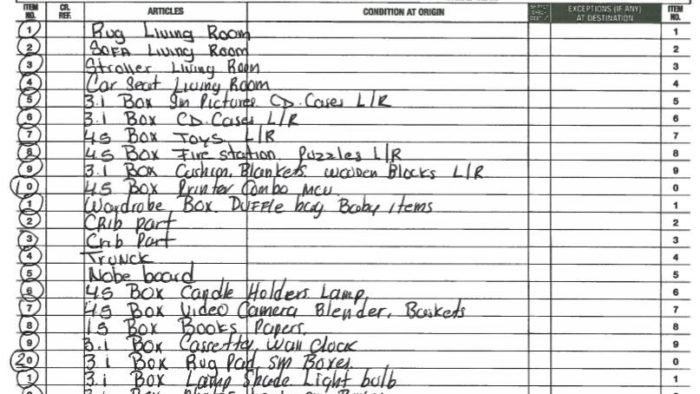 ITEM NO. CR. REF. ARTICLES CONDITION AT ORIGIN EXCEPTIONS (IF ANY) AT DESTINATION ITEM NO.
1 Rug Living Room 1
2 SOFA Living Room 2
3 Stroller Living Room 3
4 Car Seat Living Room 4
5 3.1 Box Sm Pictures CD. Cases L/R 5
6 3.1 Box CD. Cases L/R 6
7 45 Box Toys L/R 7
8 45 Box Fire station Puzzles L/R 8
9 3.1 Box Cushion, Blankets wooden Blocks L/R 9
10 45 Box Printer Combo MCU 0
1 Wardrobe Box. Duffle bag Baby items 1
2 CRib part 2
3 Crib Part 3
4 Trunck 4
5 Nobe board 5
6 45 Box Candle Holders Lamp 6
7 45 Box Video Camera Blender, Baskets 7
8 15 Box Books, Papers. 8
9 3.1 Box Wall Clock 9
20 3.1 Box Rug Pad sm Boxes 0
1 3.1 Box Lamp Shade Light bulb 1